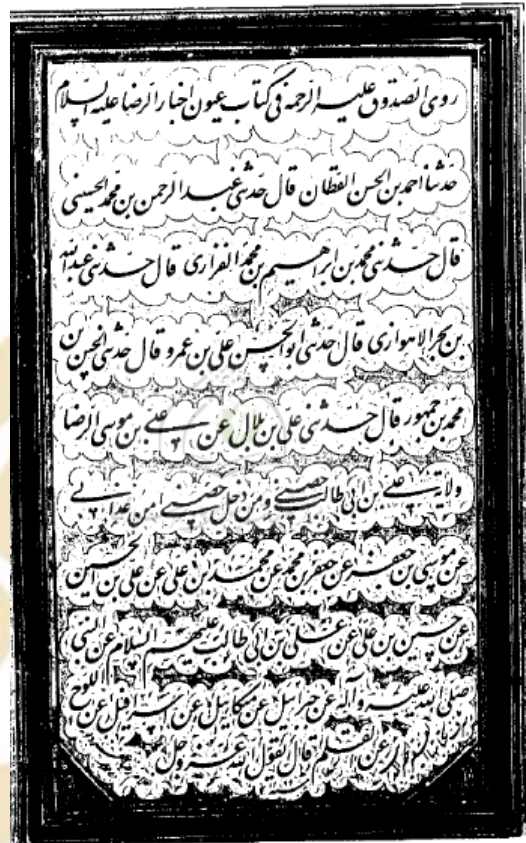 روی الصدوق علیه الرحمة فی کتاب عیون اخبار الرضا علیه السلام
حدثنا احمد بن الحسن القطان قال حدثنی عبد الرحمن بن محمد الحسینی
قال حدثنی محمد بن ابراهیم بن محمد الفزاری قال حدثنی عبدالله
بن بحر الاهوازی قال حدثنی ابوالحسن علی بن عمرو قال حدثنی الحسن بن
محمد بن جمهور قال حدثنی علی بن بلال عن علی بن موسی الرضا
ولایة علی بن ابی طالب حصنی و من دخل حصنی امن عذابی
عن موسی بن جعفر عن جعفر بن محمد عن محمد بن علی عن علی بن الحسین
عن حسین بن علی عن علی بن ابی طالب علیهم السلام عن النبی
صلی الله علیه و آله عن جبرائیل عن میکائیل عن اسرافیل عن اللوح
عن القلم قال یقول الله عز و جل